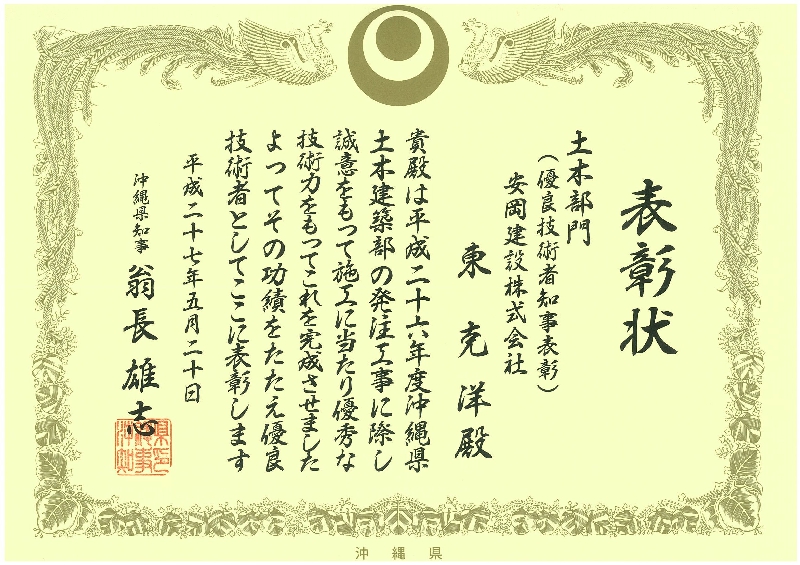 表彰状
土木部門
（優良技術者知事表彰）
安岡建設株式会社
東 克洋 殿
貴殿は平成二十六年度沖縄県
土木建築部の発注工事に際し
誠意をもって施工に当たり優秀な
技術力をもってこれを完成させました
よってその功績をたたえ優良
技術者としてここに表彰します
平成二十七年五月二十日
沖縄県知事 翁長雄志
沖縄県